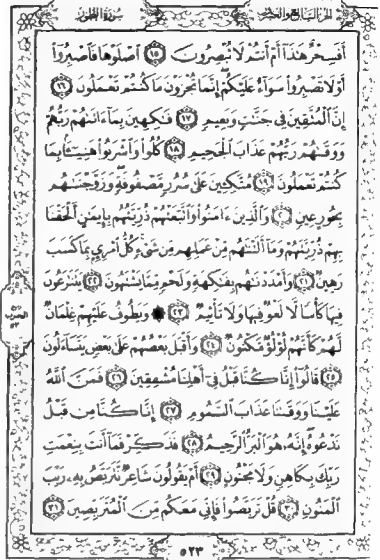 الجزء السابع والعشرون
سورة الطور
أَفَسِحْرٌ هَٰذَا أَمْ أَنتُمْ لَا تُبْصِرُونَ ١٥ ٱصْلَوْهَا فَٱصْبِرُوٓا۟
أَوْ لَا تَصْبِرُوا۟ سَوَآءٌ عَلَيْكُمْ إِنَّمَا تُجْزَوْنَ مَا كُنتُمْ تَعْمَلُونَ ١٦
إِنَّ ٱلْمُتَّقِينَ فِى جَنَّٰتٍ وَنَعِيمٍ ١٧ فَٰكِهِينَ بِمَآ ءَاتَىٰهُمْ رَبُّهُمْ
وَوَقَىٰهُمْ رَبُّهُمْ عَذَابَ ٱلْجَحِيمِ ١٨ كُلُوا۟ وَٱشْرَبُوا۟ هَنِيٓـًٔۢا بِمَا
كُنتُمْ تَعْمَلُونَ ١٩ مُتَّكِـِٔينَ عَلَىٰ سُرُرٍ مَّصْفُوفَةٍ وَزَوَّجْنَٰهُم
بِحُورٍ عِينٍ ٢٠ وَٱلَّذِينَ ءَامَنُوا۟ وَٱتَّبَعَتْهُمْ ذُرِّيَّتُهُم بِإِيمَٰنٍ أَلْحَقْنَا
بِهِمْ ذُرِّيَّتَهُمْ وَمَآ أَلَتْنَٰهُم مِّنْ عَمَلِهِم مِّن شَىْءٍ كُلُّ ٱمْرِئٍۭ بِمَا كَسَبَ
رَهِينٌ ٢١ وَأَمْدَدْنَٰهُم بِفَٰكِهَةٍ وَلَحْمٍ مِّمَّا يَشْتَهُونَ ٢٢ يَتَنَٰزَعُونَ
فِيهَا كَأْسًا لَّا لَغْوٌ فِيهَا وَلَا تَأْثِيمٌ ٢٣ وَيَطُوفُ عَلَيْهِمْ غِلْمَانٌ
لَّهُمْ كَأَنَّهُمْ لُؤْلُؤٌ مَّكْنُونٌ ٢٤ وَأَقْبَلَ بَعْضُهُمْ عَلَىٰ بَعْضٍ يَتَسَآءَلُونَ
٢٥ قَالُوٓا۟ إِنَّا كُنَّا قَبْلُ فِىٓ أَهْلِنَا مُشْفِقِينَ ٢٦ فَمَنَّ ٱللَّهُ
عَلَيْنَا وَوَقَىٰنَا عَذَابَ ٱلسَّمُومِ ٢٧ إِنَّا كُنَّا مِن قَبْلُ
نَدْعُوهُ إِنَّهُۥ هُوَ ٱلْبَرُّ ٱلرَّحِيمُ ٢٨ فَذَكِّرْ فَمَآ أَنتَ بِنِعْمَتِ
رَبِّكَ بِكَاهِنٍ وَلَا مَجْنُونٍ ٢٩ أَمْ يَقُولُونَ شَاعِرٌ نَّتَرَبَّصُ بِهِۦ رَيْبَ
ٱلْمَنُونِ ٣٠ قُلْ تَرَبَّصُوا۟ فَإِنِّى مَعَكُم مِّنَ ٱلْمُتَرَبِّصِينَ ٣١
الحزب
٥٣
٥٢٣